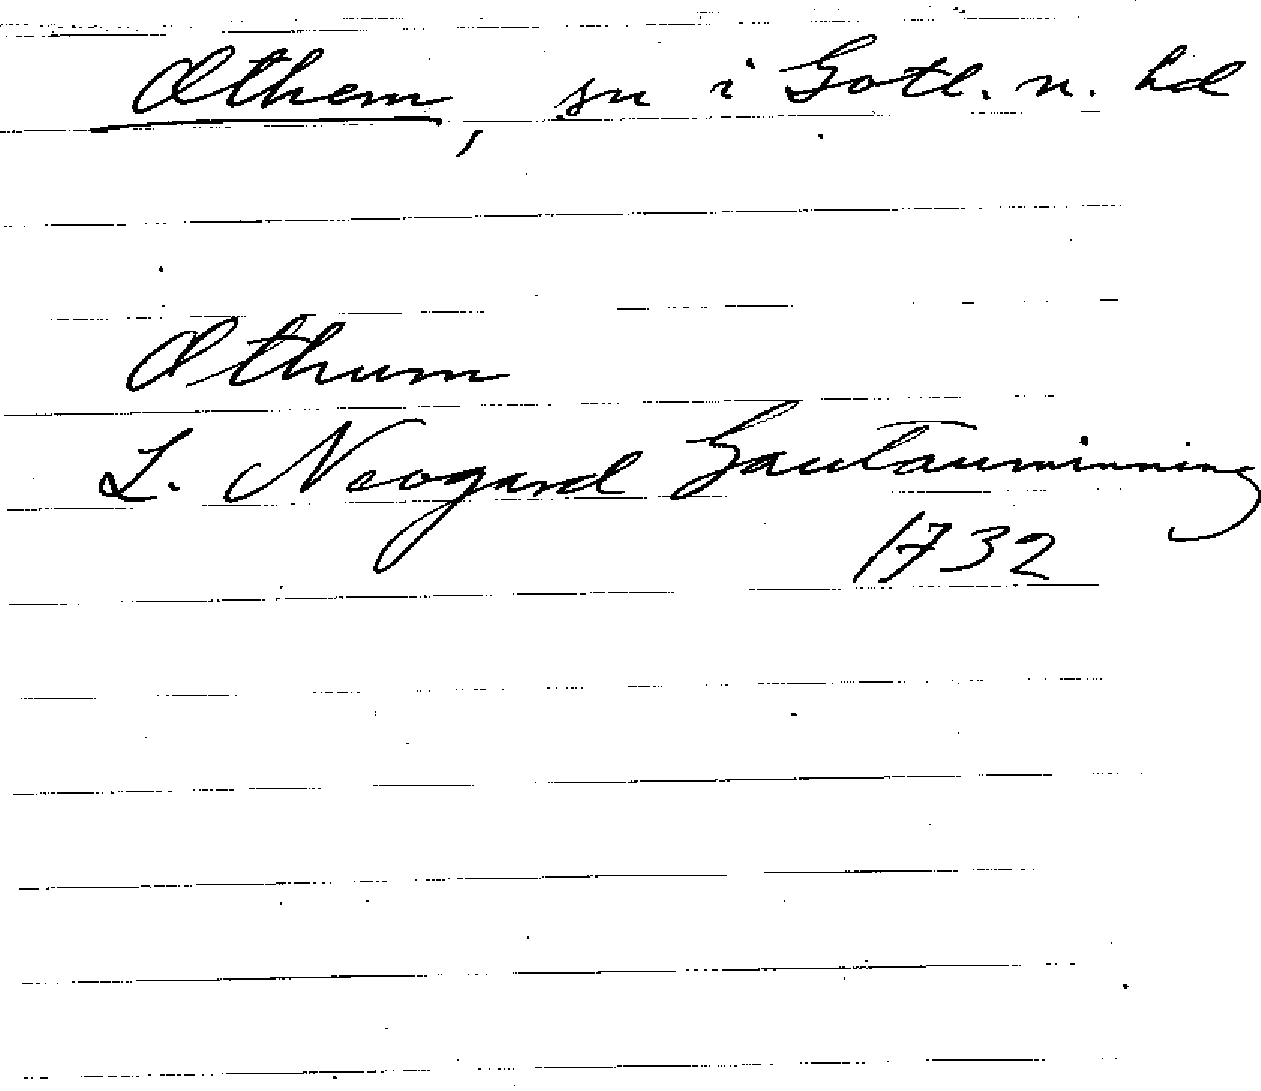 Othem, sn i Gotl. n. hd
Othum
L. Neogard Gautauminning
1732